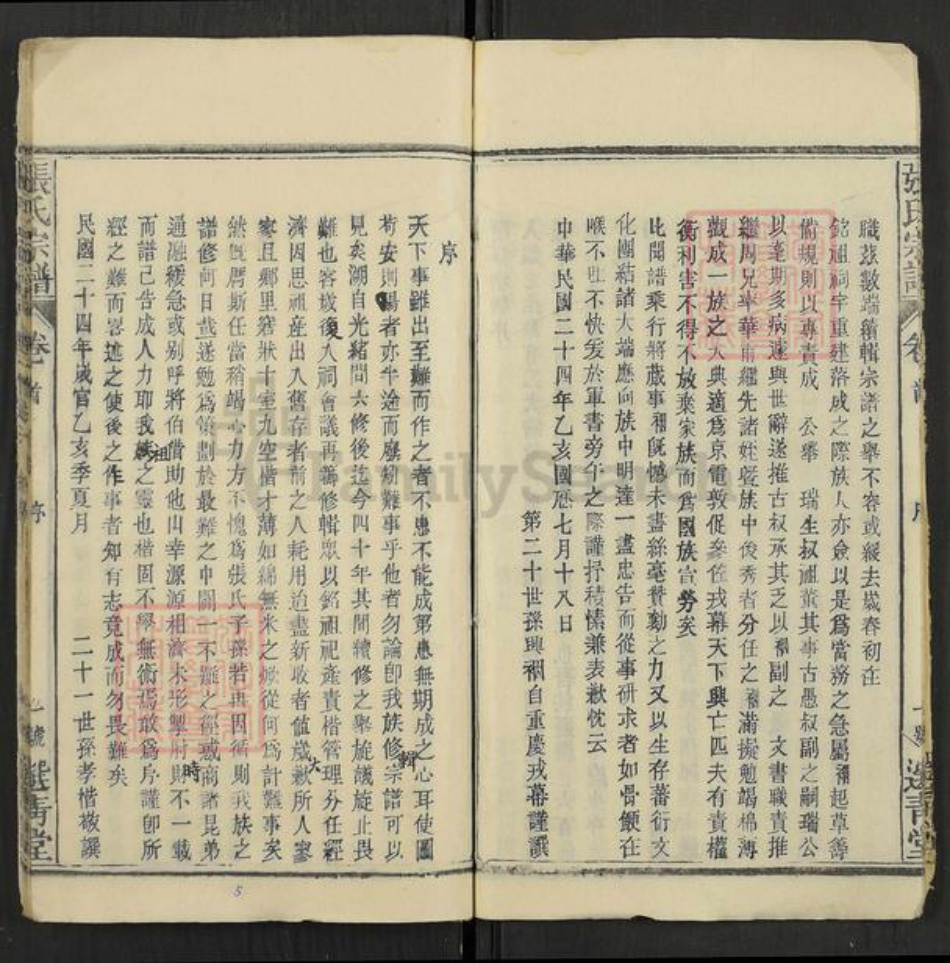 職茲數端續輯宗譜之舉不容或緩去歲春初在
銘祖祠宇重建落成之際族人亦僉以是爲當務之急屬禑起草籌
備規則以專責成 公舉 瑞生叔祖董其事古愚叔副之嗣瑞公
以耄期多病遽與世辭遂推古叔承其乏以禑副之 文書職責推
繼周兄華華甫繼先諸姪曁族中俊秀者分任之禑滿擬勉竭棉薄
觀成一族之大典適爲京電敦促參佐戎幕天下興亡匹夫有責權
衡利害不得不放棄家族而爲國族宣勞矣
比聞譜乘行將蕆事禑旣憾未盡絲毫贊勷之力又以生存蕃衍文
化團結諸大端應向族中明達一盡忠告而從事研求者如骨鯁在
喉不吐不快爰於軍書旁午之際謹抒積愫兼表歉忱云
中華民國二十四年乙亥國歷七月十八日
第二十世孫興禑自重慶戎幕謹譔
張氏宗譜 卷首 序 選靑堂
序
天下事雖出至難而作之者不患不能成第患無期成之心耳使圖
苟安則易者亦半途而廢矧難事乎他者勿論卽我族修宗譜可以
見矣湖自光緒間六修後迄今四十年其間續修之舉旋議旋止畏
難也客歲復入祠會議再籌修輯眾以銘祖祀產責楷管理分任經
濟因思祖產出入舊存者前之人耗用迨盡新收者値歲歉所入寥
寥且鄉里窘狀十室九空楷才薄如綿無米之炊從何爲計難事矣
然旣膺斯任當稍竭心力方不愧爲張氏子孫若再因循則我族之
譜修何日哉遂勉爲策劃於最難之中闢一不難之徑或商諸昆弟
通融緩急或別呼將伯借助他山幸源源相濟未形掣肘時不一載
而譜已告成人力耶我族祖之靈也楷固不學無術焉敢爲序謹卽所
經之難而畧述之使後之作事者知有志竟成而勿畏難矣
民國二十四年歲官乙亥季夏月 二十一世孫孝楷敬譔
張氏宗譜 卷首 序 一號 選靑堂
5
FamilySearch